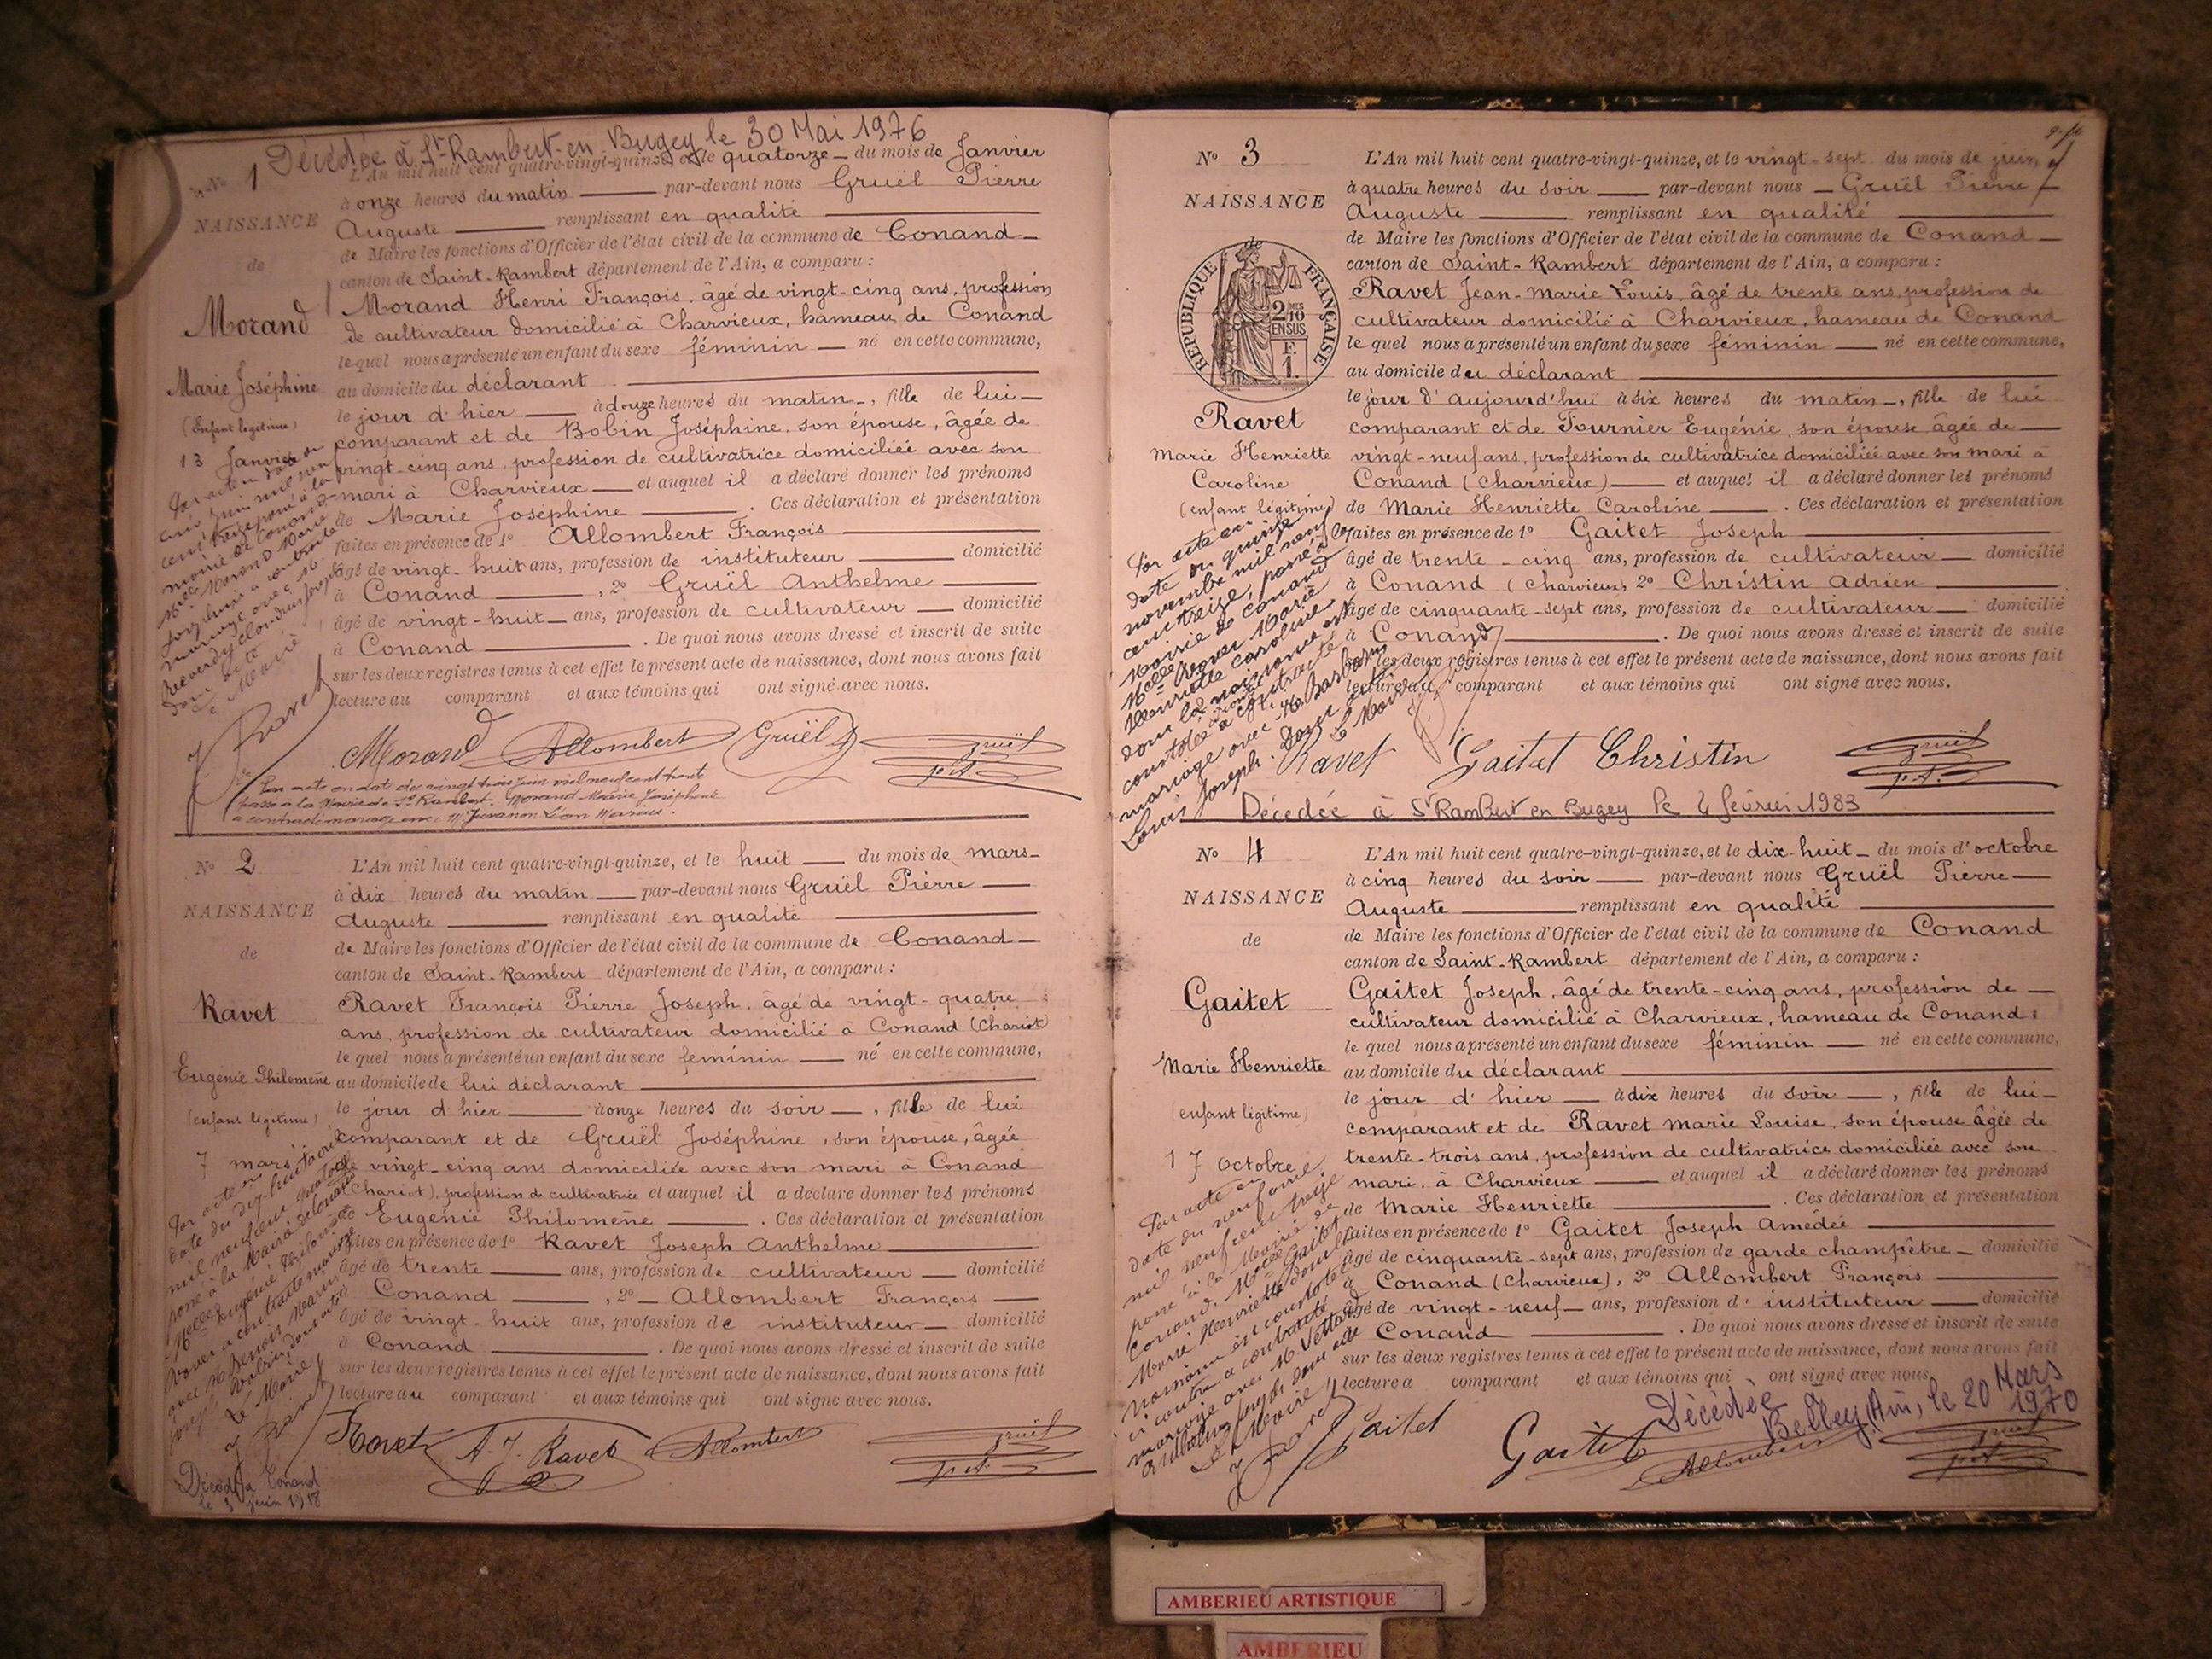 Décédée à St-Rambert-en-Bugey le 30 Mai 1976
No 1
L'An mil huit cent quatre-vingt-quinze, et le quatorze du mois de Janvier
à onze heures du matin par-devant nous Gruël Pierre
NAISSANCE
Auguste remplissant en qualité
de
de Maire les fonctions d'Officier de l'état civil de la commune de Conand
canton de Saint-Rambert département de l'Ain, a comparu :
Morand
Morand Henri François, âgé de vingt-cinq ans, profession
de cultivateur domicilié à Charvieux, hameau de Conand
lequel nous a présenté un enfant du sexe féminin né en cette commune,
Marie Joséphine
au domicile du déclarant
(Enfant légitime)
le jour d'hier à douze heures du matin, fille de lui
comparant et de Bobin Joséphine, son épouse, âgée de
13 Janvier
vingt-cinq ans, profession de cultivatrice domiciliée avec son
mari à Charvieux et auquel il a déclaré donner les prénoms
de Marie Joséphine . Ces déclaration et présentation
faites en présence de 1o Allombert François
âgé de vingt-huit ans, profession de instituteur domicilié
à Conand , 2o Gruël Anthelme
âgé de vingt-huit ans, profession de cultivateur domicilié
à Conand . De quoi nous avons dressé et inscrit de suite
sur les deux registres tenus à cet effet le présent acte de naissance, dont nous avons fait
lecture au comparant et aux témoins qui ont signé avec nous.
J Ravet
Morand Allombert Gruël Gruël
Par acte en date du vingt trois Juin mil neuf cent trente
passé à la Mairie de St Rambert, Morand Marie Joséphine
a contracté mariage avec Mr Juvanon Léon Marius.
No 2
L'An mil huit cent quatre-vingt-quinze, et le huit du mois de mars
à dix heures du matin par-devant nous Gruël Pierre
NAISSANCE
Auguste remplissant en qualité
de
de Maire les fonctions d'Officier de l'état civil de la commune de Conand
canton de Saint-Rambert département de l'Ain, a comparu :
Ravet
Ravet François Pierre Joseph, âgé de vingt-quatre
ans, profession de cultivateur domicilié à Conand (Chariot)
lequel nous a présenté un enfant du sexe féminin né en cette commune,
Eugénie Philomène
au domicile de lui déclarant
(enfant légitime)
le jour d'hier à onze heures du soir, fille de lui
comparant et de Gruël Joséphine, son épouse, âgée
7 mars
de vingt-cinq ans domiciliée avec son mari à Conand
(Chariot), profession de cultivatrice et auquel il a déclaré donner les prénoms
de Eugénie Philomène . Ces déclaration et présentation
faites en présence de 1o Ravet Joseph Anthelme
âgé de trente ans, profession de cultivateur domicilié
à Conand , 2o Allombert François
âgé de vingt-huit ans, profession de instituteur domicilié
à Conand . De quoi nous avons dressé et inscrit de suite
sur les deux registres tenus à cet effet le présent acte de naissance, dont nous avons fait
lecture au comparant et aux témoins qui ont signé avec nous.
Le Maire
J Ravet
Ravet A. J. Ravet Allombert Gruël
Décédée à Conand
No 3
L'An mil huit cent quatre-vingt-quinze, et le vingt-sept du mois de juin
à quatre heures du soir par-devant nous Gruël Pierre
NAISSANCE
Auguste remplissant en qualité
de
de Maire les fonctions d'Officier de l'état civil de la commune de Conand
canton de Saint-Rambert département de l'Ain, a comparu :
REPUBLIQUE FRANÇAISE
2/10 EN SUS
F. 1.
Ravet Jean-Marie Louis, âgé de trente ans, profession de
cultivateur domicilié à Charvieux, hameau de Conand
lequel nous a présenté un enfant du sexe féminin né en cette commune,
au domicile du déclarant
le jour d'aujourd'hui à six heures du matin, fille de lui
Ravet
comparant et de Fournier Eugénie, son épouse, âgée de
Marie Henriette
vingt-neuf ans, profession de cultivatrice domiciliée avec son mari à
Caroline
Conand (Charvieux) et auquel il a déclaré donner les prénoms
(enfant légitime)
de Marie Henriette Caroline . Ces déclaration et présentation
faites en présence de 1o Gaitet Joseph
âgé de trente-cinq ans, profession de cultivateur domicilié
à Conand (Charvieux), 2o Christin Adrien
âgé de cinquante-sept ans, profession de cultivateur domicilié
à Conand . De quoi nous avons dressé et inscrit de suite
sur les deux registres tenus à cet effet le présent acte de naissance, dont nous avons fait
lecture au comparant et aux témoins qui ont signé avec nous.
Par acte en
date du quinze
novembre mil neuf
cent treize, passé à la
Mairie de Conand
Melle Ravet Marie
Henriette Caroline
dont la naissance est
constatée ci-contre a contracté
mariage avec M. Barbarin
Louis Joseph. Dont acte
Le Maire
Ravet Gaitet Christin Gruël
Décédée à St Rambert en Bugey le 4 février 1983
No 4
L'An mil huit cent quatre-vingt-quinze, et le dix-huit du mois d'octobre
à cinq heures du soir par-devant nous Gruël Pierre
NAISSANCE
Auguste remplissant en qualité
de
de Maire les fonctions d'Officier de l'état civil de la commune de Conand
canton de Saint-Rambert département de l'Ain, a comparu :
Gaitet
Gaitet Joseph, âgé de trente-cinq ans, profession de
cultivateur domicilié à Charvieux, hameau de Conand
lequel nous a présenté un enfant du sexe féminin né en cette commune,
Marie Henriette
au domicile du déclarant
(enfant légitime)
le jour d'hier à dix heures du soir, fille de lui
comparant et de Ravet Marie Louise, son épouse âgée de
17 Octobre
trente-trois ans, profession de cultivatrice domiciliée avec son
mari à Charvieux et auquel il a déclaré donner les prénoms
de Marie Henriette . Ces déclaration et présentation
faites en présence de 1o Gaitet Joseph Amédée
âgé de cinquante-sept ans, profession de garde champêtre domicilié
à Conand (Charvieux), 2o Allombert François
âgé de vingt-neuf ans, profession d'instituteur domicilié
à Conand . De quoi nous avons dressé et inscrit de suite
sur les deux registres tenus à cet effet le présent acte de naissance, dont nous avons fait
lecture a comparant et aux témoins qui ont signé avec nous.
Le Maire
J Ravet
Décédée Belley, Ain, le 20 Mars 1970
Gaitet Gaitet Allombert Gruël
AMBERIEU ARTISTIQUE
AMBERIEU